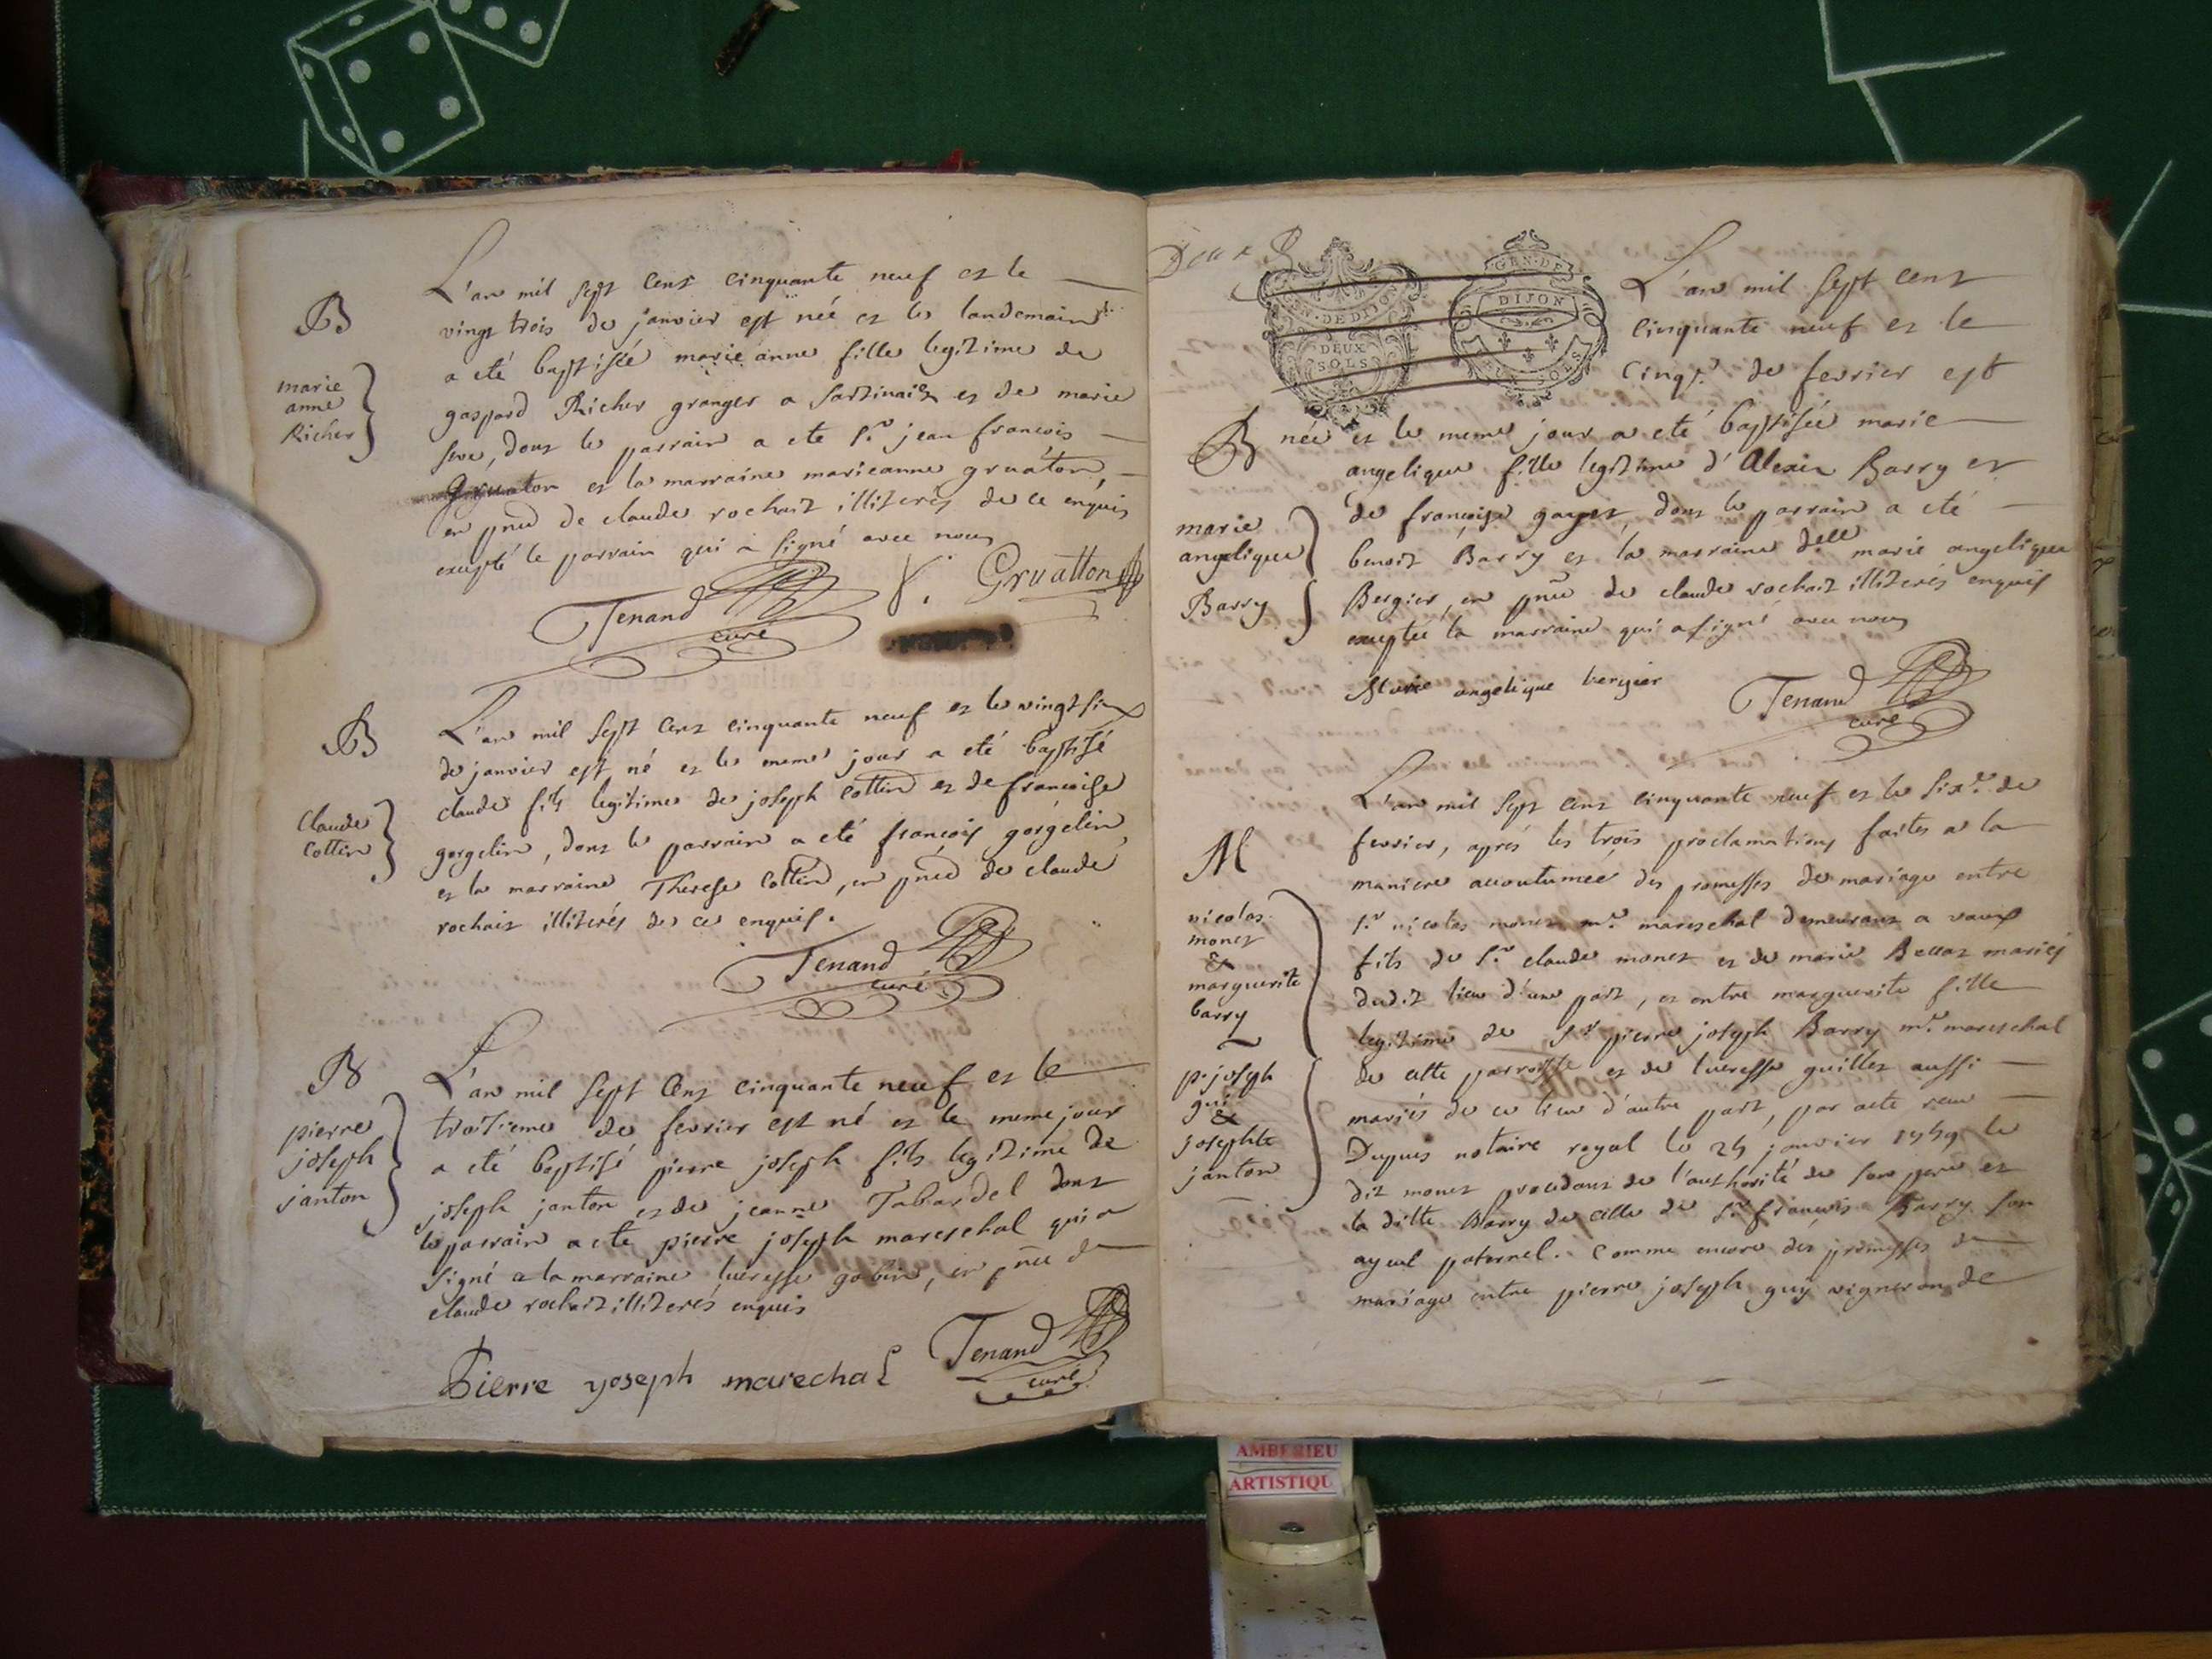 L'an mil sept cent cinquante neuf et le
B
vingt trois de janvier est née et le landemain
a eté baptisée marie anne fille legitime de
marie
anne
Richer
gaspard Richer granger a et de marie
, dont le parrain a eté Sr jean françois
Gruaton et la marraine marieanne gruaton,
en pnce de claude rochait illiterés de ce enquis
excepté le parrain qui a signé avec nous
Tenand
curé
Gruatton
B
L'an mil sept cent cinquante neuf et le vingt six
de janvier est né et le meme jour a eté baptisé
Claude
Cottin
claude fils legitime de joseph Cottin et de françoise
gorgelin, dont le parrain a eté françois gorgelin,
et la marraine Therese Cottin, en pnce de claude
rochait illiterés de ce enquis.
Tenand
curé
B
pierre
joseph
janton
L'an mil sept Cent cinquante neuf et le
troisieme de fevrier est né et le meme jour
a eté baptisé pierre joseph fils legitime de
joseph janton et de jeanne Tabardel dont
le parrain a eté pierre joseph mareschal qui a
signé et la marraine lucresse gobin, en pnce de
claude rochait illiterés enquis
Pierre yoseph marechal
Tenand
curé
Deux
GEN. DE DIJON
DEUX
SOLS
GEN. DE
DIJON
L'an mil sept cent
cinquante neuf et le
cinqe. de fevrier est
B
née et le meme jour a eté baptisée marie
angelique fille legitime d'Alexis Barry et
marie
angelique
Barry
de françoise goyet, dont le parrain a eté
benoit Barry et la marraine delle marie angelique
Bergier, en pnce de claude rochait illiterés enquis
exceptée la marraine qui a signé avec nous
Marie angelique bergier
Tenand
curé
L'an mil sept cent cinquante neuf et le sixe. de
M
fevrier, aprés les trois proclamations faites a la
maniere accoutumée des promesses de mariage entre
nicolas
monet
&
marguerite
barry
Sr nicolas monet me. mareschal demeurant a vaux
fils de Sr claude monet et de marie Bellat mariés
dudit lieu d'une part, et entre marguerite fille
legitime de Sr pierre joseph Barry me. mareschal
p. joseph
gui
&
josephte
janton
de cette parroisse et de lucresse guillet aussi
mariés de ce lieu d'autre part, par acte reçu
Dupuis notaire royal le 24 janvier 1759 le
dit monet procedant de l'authorité de son pere et
la ditte Barry de celle de Sr françois Barry son
ayeul paternel. Comme encore des promesses de
mariage entre pierre joseph guy vigneron de
AMBERIEU
ARTISTIQU